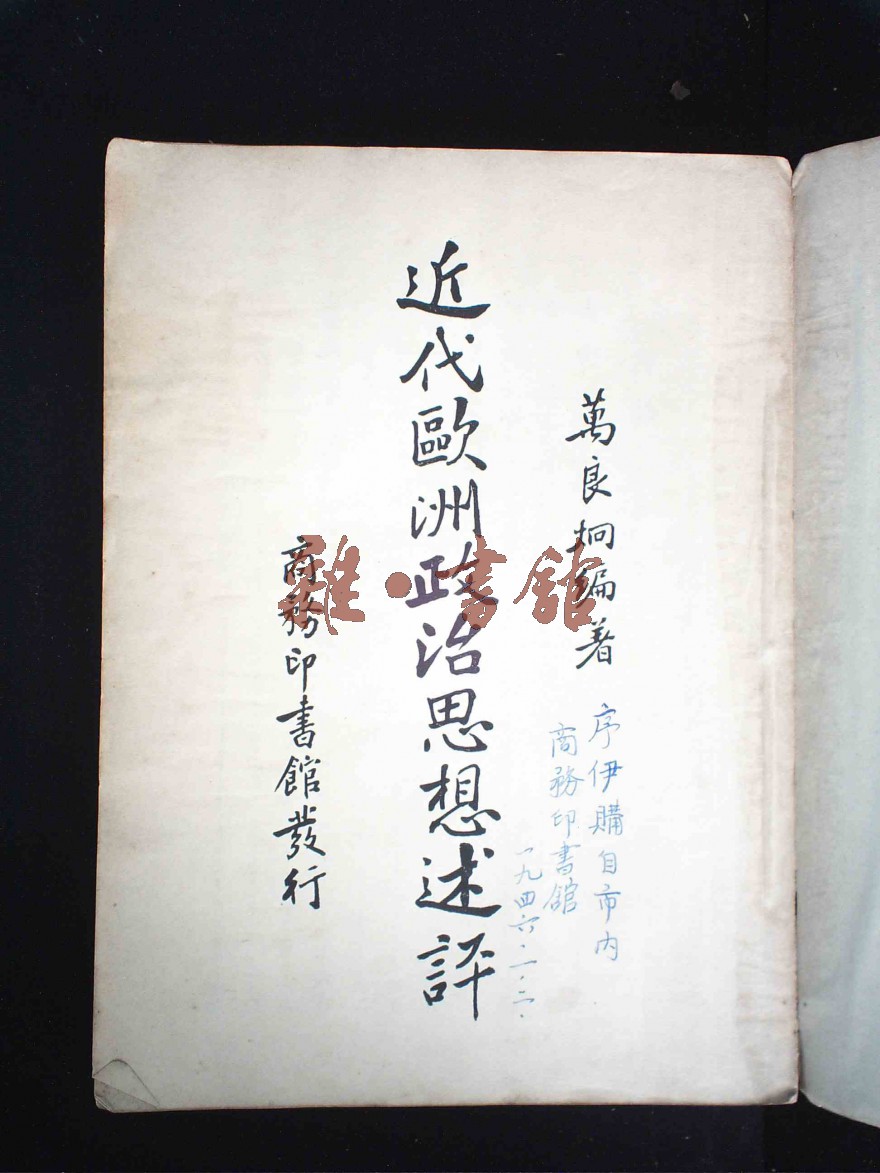 萬良炯編著
近代歐洲政治思想述評
商務印書館發行
序伊購自市内
商務印書館
一九四六·一·二·
雜·書館